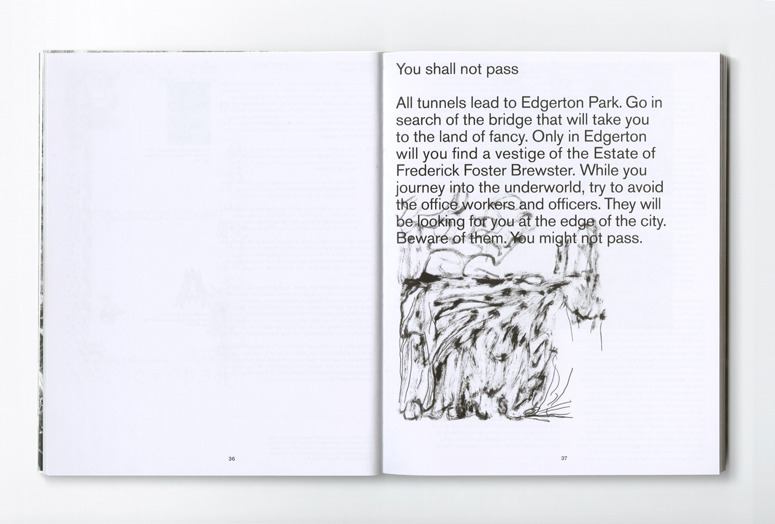 You shall not pass
All tunnels lead to Edgerton Park. Go in
search of the bridge that will take you
to the land of fancy. Only in Edgerton
will you find a vestige of the Estate of
Frederick Foster Brewster. While you
journey into the underworld, try to avoid
the office workers and officers. They will
be looking for you at the edge of the city.
Beware of them. You might not pass.
36
37